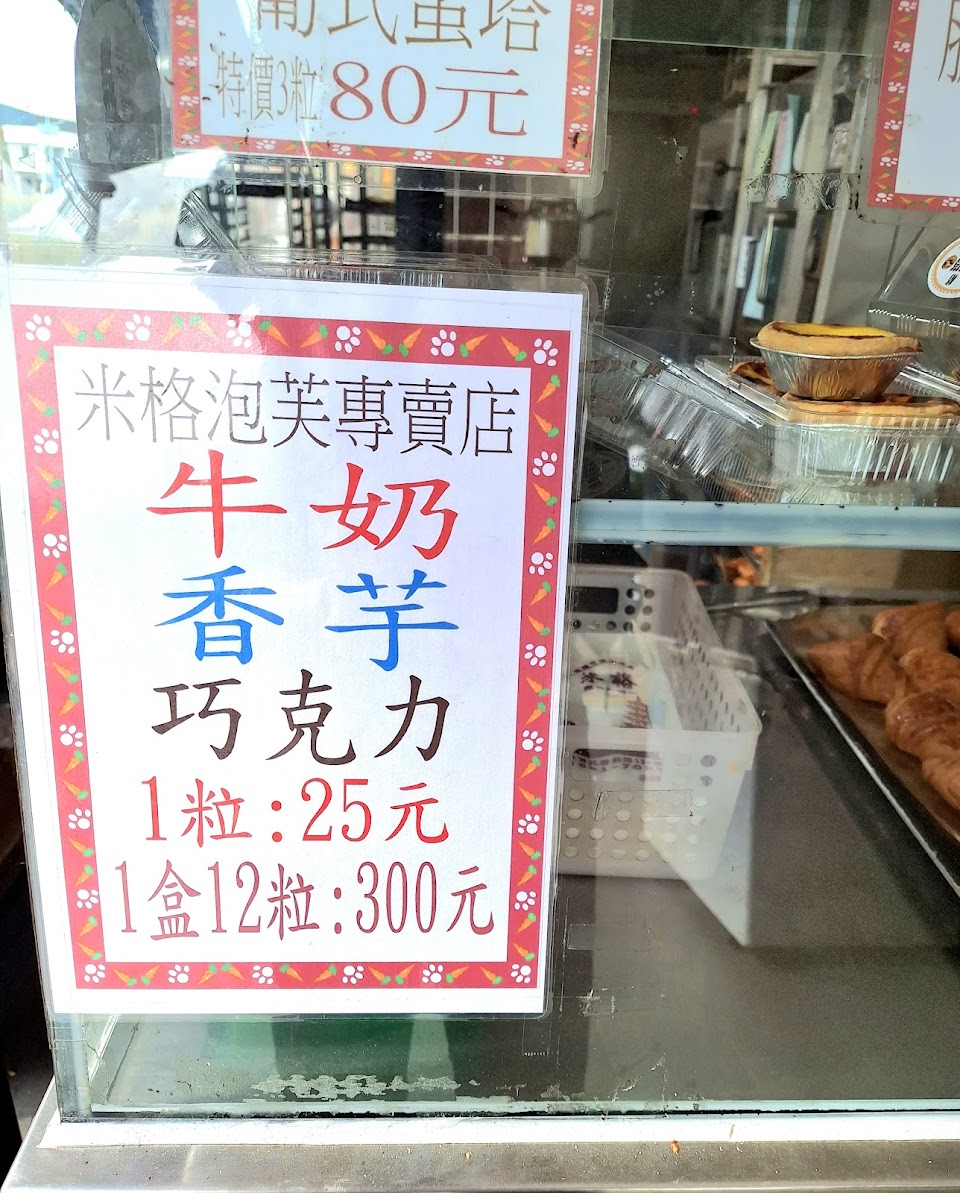 葡式蛋塔
特價3粒80元
米格泡芙專賣店
牛奶
香芋
巧克力
1粒:25元
1盒12粒:300元
米格